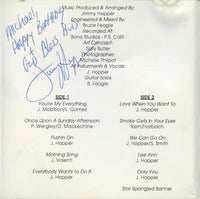 Michael,
Happy Birthday
+
God Bless
Music Produced & Arranged By:
Jimmy Hopper
Engineered & Mixed By:
Bruce Feagle
Recorded At:
Bona Studios - P.S. Calif.
Art Concept:
Suzy Butler
Photography:
Michelle Philpot
All Instruments & Vocals
J. Hopper
Guitar Solos
B. Feagle
SIDE 1
You're My Everything
J. Mobilion/L. Gomez
Once Upon A Sunday Afternoon
P. Wergley/D. Maskechne
Pushin On
J. Hopper
Morning Song
J. Valenti
Everybody Wants To Do It
J. Hopper
SIDE 2
Love When You Want To
J. Hopper
Smoke Gets In Your Eyes
Kern/Harbach
We Can Go On
J. Hopper/S. Smith
Lee Ann
J. Hopper
Only You
J. Hopper
Star Spangled Banner